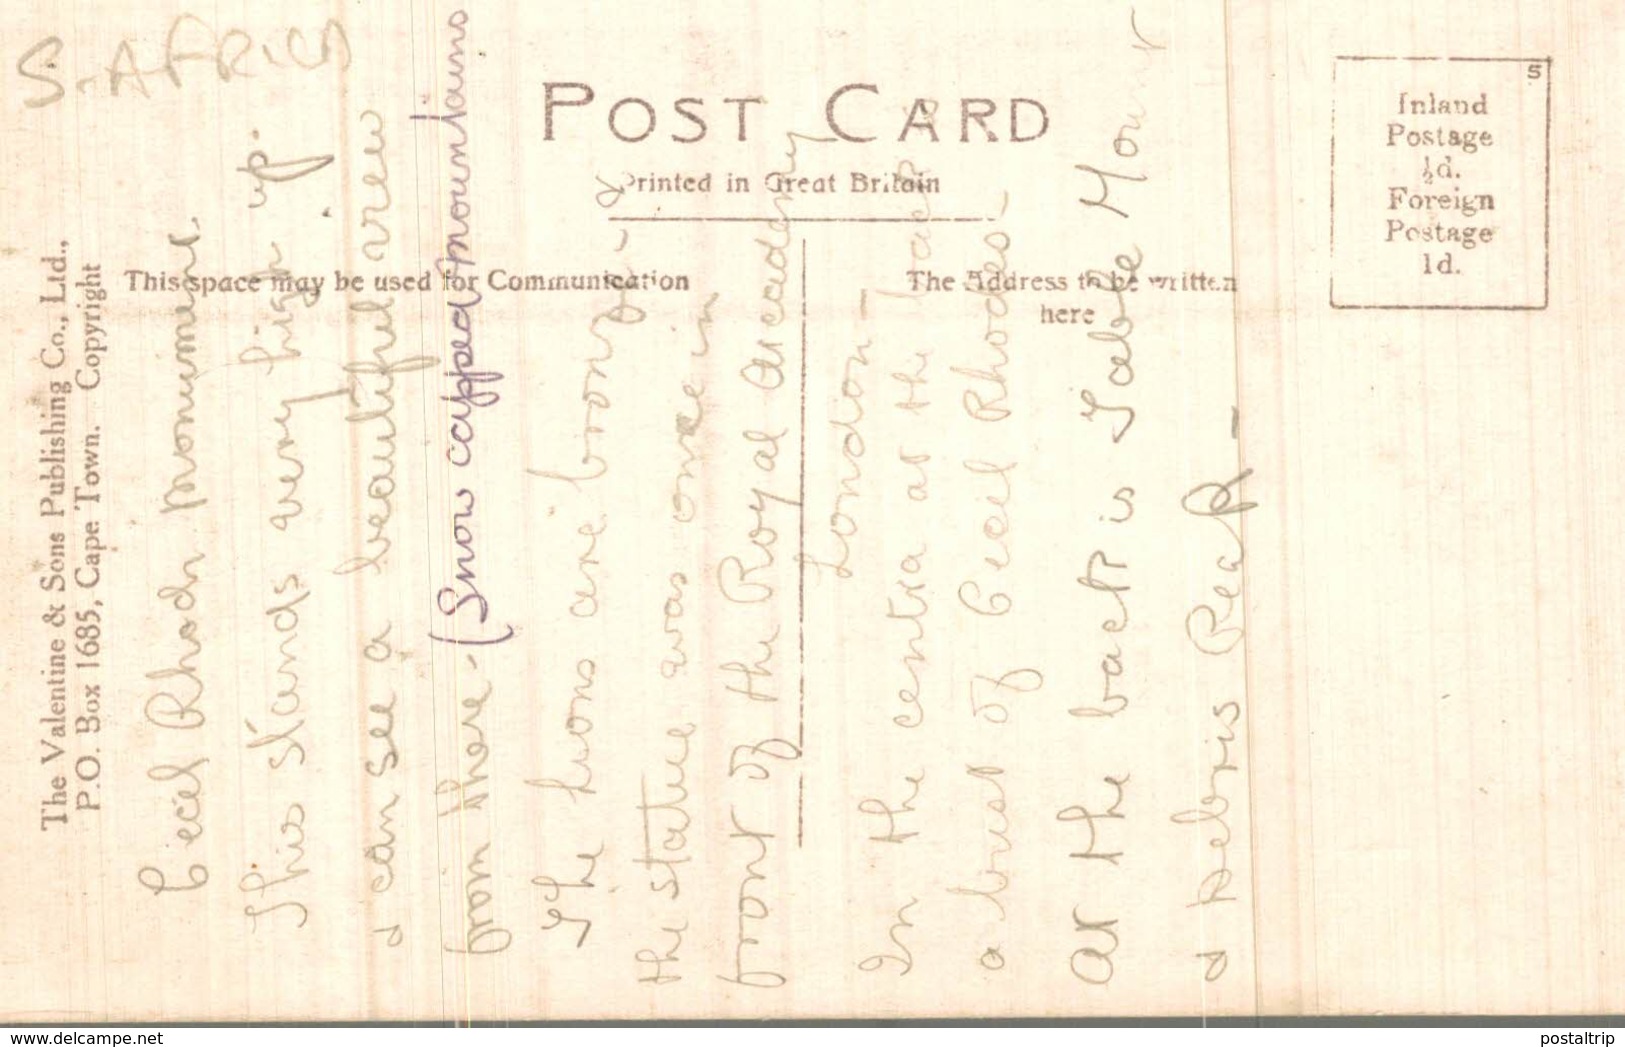 S. AFRICA
POST CARD
Printed in Great Britain
This space may be used for Communication
The Address to be written
here
Inland
Postage
½d.
Foreign
Postage
1d.
S
The Valentine & Sons Publishing Co., Ltd.,
P.O. Box 1685, Cape Town. Copyright
Cecil Rhods monument
This stands very high up.
& can see a beautiful view
from there - (Snow capped mountains
The lions are bronz - &
the statue was once in
front of the Royal Arcadamy
London -
In the centra at the back
a bust of Cecil Rhodes -
at the back is Table Mount
& Debris Peak -
postaltrip.net
postaltrip